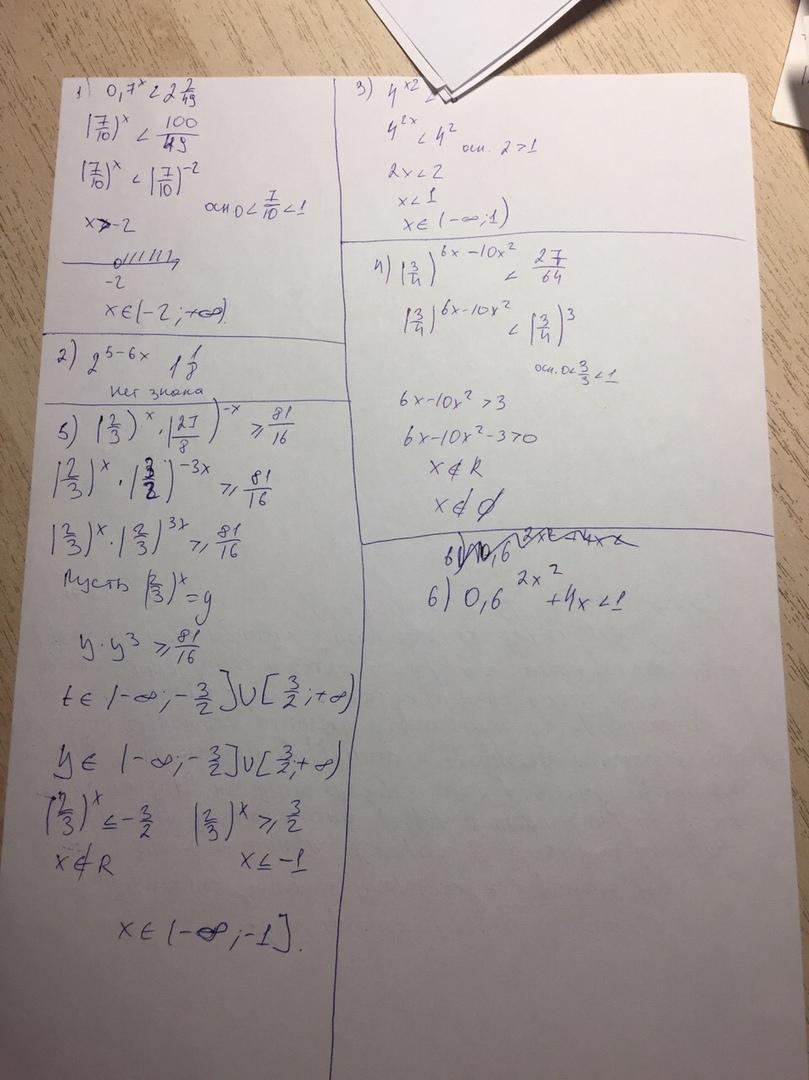 1) 0,7^x < 2 2/49
(7/10)^x < 100/49
(7/10)^x < (7/10)^-2
осн 0 < 7/10 < 1
x > -2
-2
x ∈ (-2 ; +∞)
2) 2^5-6x 1 1/8
Нет знака
5) (2/3)^x · (27/8)^-x ≥ 81/16
(2/3)^x · (3/2)^-3x ≥ 81/16
(2/3)^x · (2/3)^3x ≥ 81/16
Пусть (2/3)^x = y
y · y^3 ≥ 81/16
t ∈ (-∞ ; -3/2] ∪ [3/2 ; +∞)
y ∈ (-∞ ; -3/2] ∪ [3/2 ; +∞)
(2/3)^x ≤ -3/2 (2/3)^x ≥ 3/2
x ∉ R x ≤ -1
x ∈ (-∞ ; -1].
3) 4^x2 <
4^2x < 4^2
осн. 2 > 1
2x < 2
x < 1
x ∈ (-∞ ; 1)
4) (3/4)^6x-10x^2 < 27/64
(3/4)^6x-10x^2 < (3/4)^3
осн. 0 < 3/3 < 1
6x-10x^2 > 3
6x-10x^2-3 > 0
x ∉ R
x ∉ ∅
6) 0,6^2x^2 + 4x < 1